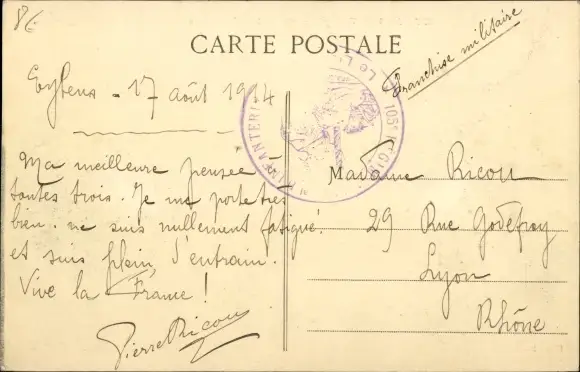 8€
CARTE POSTALE
Franchise militaire
Eybens - 17 août 1914
105e RÉGI
INFANTERI
Ma meilleure pensée à
toutes trois. Je me porte très
bien. ne suis nullement fatigué
et suis plein d'entrain.
Vive la France !
Pierre Ricou
Madame Ricou
29 Rue Godefroy
Lyon
Rhône